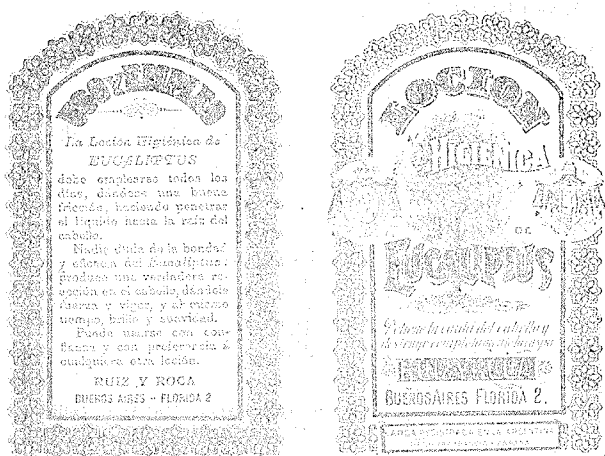 USO Y EMPLEO
La Loción Higiénica de
EUCALIPTUS
debe emplearse todos los
días, dándose una buena
fricción, haciendo penetrar
el líquido hasta la raíz del
cabello.
Nadie duda de la bondad
y eficacia del Eucaliptus:
produce una verdadera re-
acción en el cabello, dándole
fuerza y vigor, y al mismo
tiempo, brillo y suavidad.
Puede usarse con con-
fianza y con preferencia á
cualquiera otra loción.
RUIZ Y ROCA
BUENOS AIRES - FLORIDA 2
LOCION
HIGIENICA
DE
EUCALIPTUS
la caida del cabello y
destruye completamente la caspa
RUIZ Y ROCA
BUENOS AIRES FLORIDA 2.
MARCA REGISTRADA EN LA ARGENTINA